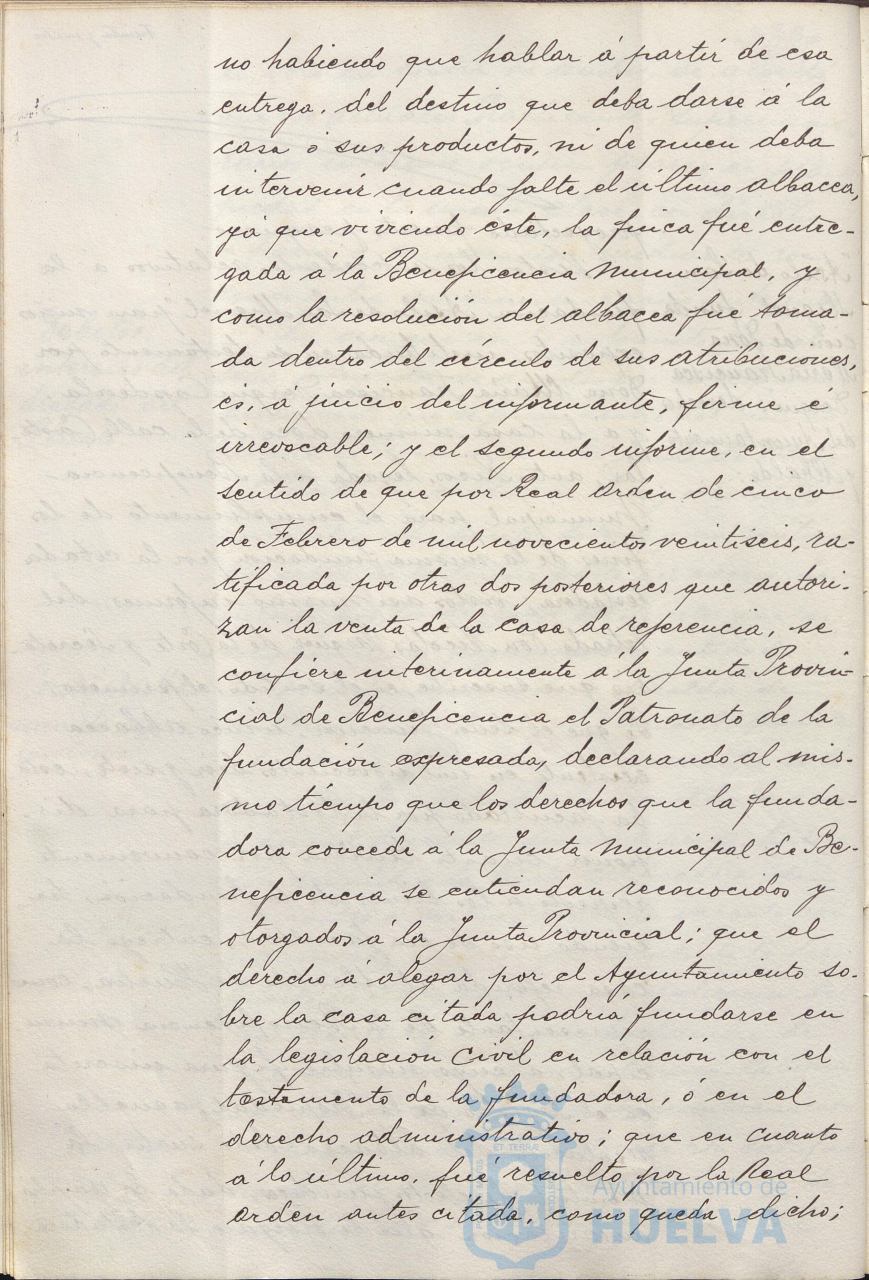 no habiendo que hablar á partir de esa
entrega, del destino que deba darse á la
casa ó sus productos, ni de quien deba
intervenir cuando falte el último albacea,
yá que viviendo éste, la finca fué entre-
gada á la Beneficencia Municipal, y
como la resolución del albacea fué toma-
da dentro del círculo de sus atribuciones,
és, á juicio del informante, firme é
irrevocable; y el segundo informe, en el
sentido de que por Real orden de cinco
de Febrero de mil novecientos veintiseis, ra-
tificada por otras dos posteriores que autori-
zan la venta de la casa de referencia, se
confiere interinamente á la Junta Provin-
cial de Beneficencia el Patronato de la
fundación expresada, declarando al mis-
mo tiempo que los derechos que la funda-
dora concede á la Junta Municipal de Be-
neficencia se entiendan reconocidos y
otorgados á la Junta Provincial; que el
derecho á alegar por el Ayuntamiento so-
bre la casa citada podría fundarse en
la legislación civil en relación con el
testamento de la fundadora, ó en el
derecho administrativo; que en cuanto
á lo último, fué resuelto por la Real
orden antes citada, como queda dicho;
Ayuntamiento de
HUELVA